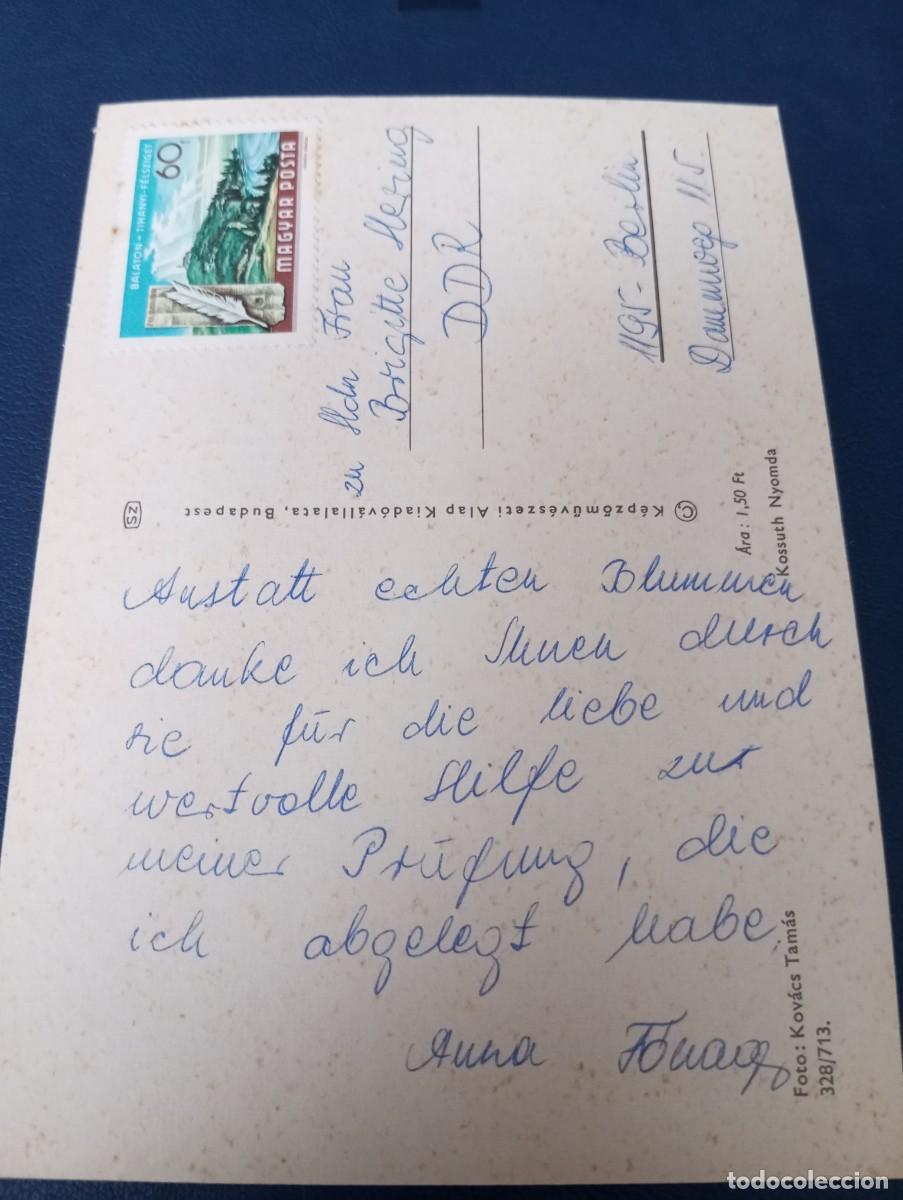 BALATON – TIHANYI-FÉLSZIGET
60f
MAGYAR POSTA
zu Hdn Frau
Brigitte Hering
DDR
1195- Berlin
Dammweg 115.
© Képzőművészeti Alap Kiadóvállalata, Budapest
SZ
Ára: 1,50 Ft
Kossuth Nyomda
Anstatt echten Blummen
danke ich Ihnen durch
sie für die liebe und
wertvolle Hilfe zur
meiner Prüfung, die
ich abgelegt habe
Anna
Foto: Kovács Tamás
328/713.
todocoleccion